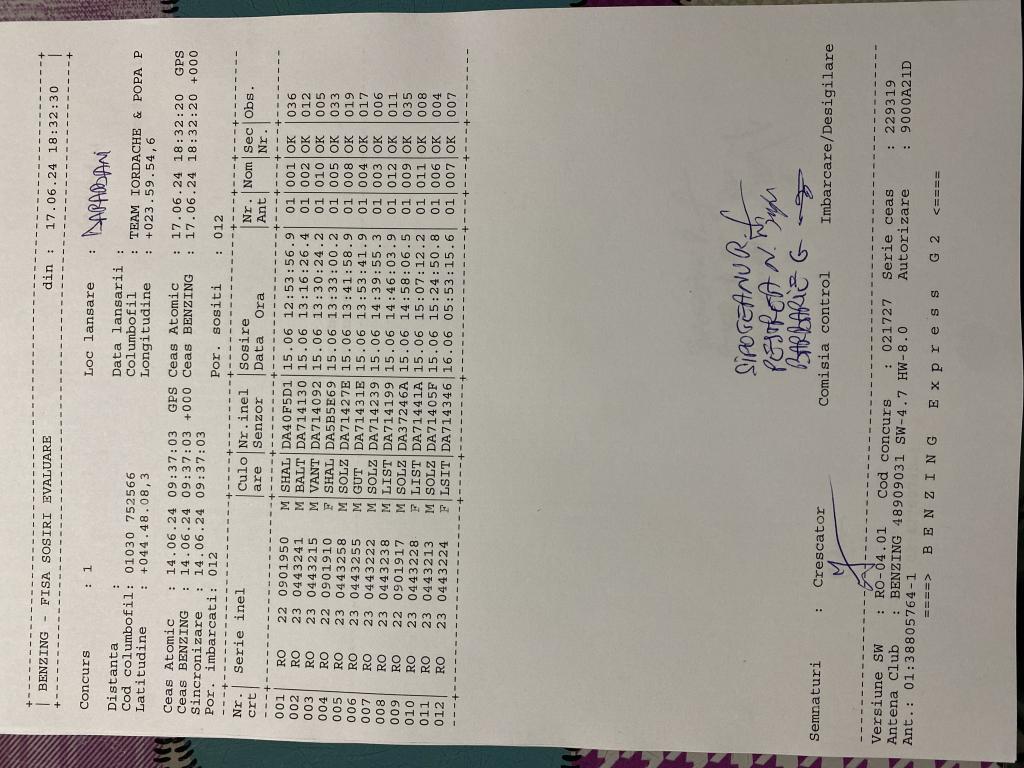 BENZING - FISA SOSIRI EVALUARE din : 17.06.24 18:32:30
Concurs : 1 Loc lansare : DARABANI
Distanta : Data lansarii :
Cod columbofil: 01030 752566 Columbofil : TEAM IORDACHE & POPA P
Latitudine : +044.48.08,3 Longitudine : +023.59.54,6
Ceas Atomic : 14.06.24 09:37:03 GPS Ceas Atomic : 17.06.24 18:32:20 GPS
Ceas BENZING : 14.06.24 09:37:03 +000 Ceas BENZING : 17.06.24 18:32:20 +000
Sincronizare : 14.06.24 09:37:03
Por. imbarcati: 012 Por. sositi : 012
Nr. | Serie inel |Culo|Nr.inel |Sosire |Nr. |Nom|Sec|Obs.
crt | |are |Senzor |Data Ora |Ant | |Nr.|
001 | RO 22 0901950 M|SHAL|DA40F5D1|15.06 12:53:56.9|01 |001|OK |036
002 | RO 23 0443241 M|BALT|DA714130|15.06 13:16:26.4|01 |002|OK |012
003 | RO 23 0443215 M|VANT|DA714092|15.06 13:30:24.2|01 |010|OK |005
004 | RO 22 0901910 F|SHAL|DA5B5E69|15.06 13:33:00.2|01 |005|OK |033
005 | RO 23 0443258 M|SOLZ|DA71427E|15.06 13:41:58.9|01 |008|OK |019
006 | RO 23 0443255 M|GUT |DA71431E|15.06 13:53:41.9|01 |004|OK |017
007 | RO 23 0443222 M|SOLZ|DA714239|15.06 14:39:55.3|01 |003|OK |006
008 | RO 23 0443238 M|LIST|DA714199|15.06 14:46:03.9|01 |012|OK |011
009 | RO 22 0901917 M|SOLZ|DA37246A|15.06 14:58:06.5|01 |009|OK |035
010 | RO 23 0443228 F|LIST|DA71441A|15.06 15:07:12.2|01 |011|OK |008
011 | RO 23 0443213 M|SOLZ|DA71405F|15.06 15:24:50.8|01 |006|OK |004
012 | RO 23 0443224 F|LSIT|DA714346|16.06 05:53:15.6|01 |007|OK |007
SIPOTEANU R.
PESTREA N.
BARBARIE G
Semnaturi : Crescator Comisia control Imbarcare/Desigilare
Versiune SW : RO-04.01 Cod concurs : 021727 Serie ceas : 229319
Antena Club : BENZING 48909031 SW-4.7 HW-8.0 Autorizare : 9000A21D
Ant.: 01:38805764-1
====> B E N Z I N G E x p r e s s G 2 <====